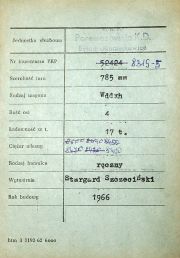 Jednostka służbowa
Nr inwentarza PKP 52424 8315-5
Szerokość toru 785 mm
Rodzaj wagonu Wddxh
Ilość osi 4
Ładowność w t. 17 t.
Ciężar własny
Rodzaj hamulca ręczny
Wytwórnia Stargard Szczeciński
Rok budowy 1966